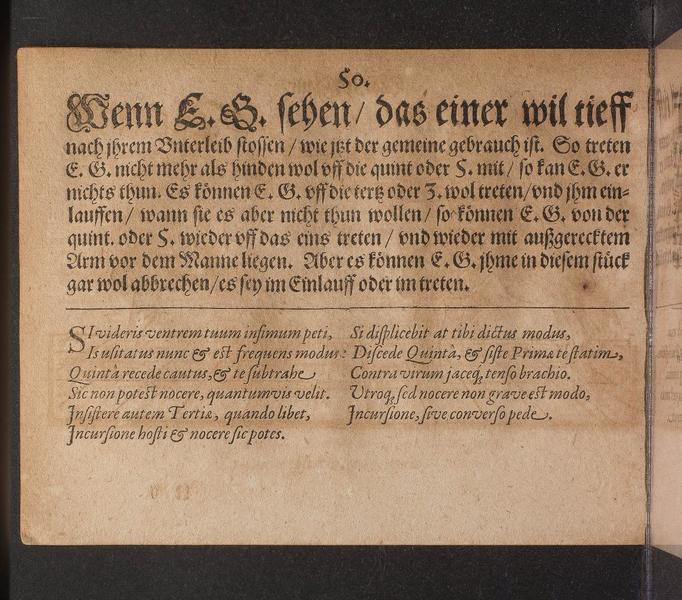 50.
Wenn E. G. sehen / das einer wil tieff
nach jhrem Vnterleib stossen / wie jtzt der gemeine gebrauch ist. So treten
E. G. nicht mehr als hinden wol vff die quint oder 5. mit / so kan E. G. er
nichts thun. Es können E. G. vff die tertz oder 3. wol treten / vnd jhm ein-
lauffen / wann sie es aber nicht thun wollen / so können E. G. von der
quint. oder 5. wieder vff das eins treten / vnd wieder mit außgerecktem
Arm vor dem Manne liegen. Aber es können E. G. jhme in diesem stück
gar wol abbrechen / es sey im Einlauff oder im treten.
SI videris ventrem tuum infimum peti,
Is usitatus nunc & est frequens modus:
Quintà recede cautus, & te subtrahe
Sic non potest nocere, quantumvis velit.
Insistere autem Tertiæ, quando libet,
Incursione hosti & nocere sic potes.
Si displicebit at tibi dictus modus,
Discede Quintà, & siste Primæ te statim,
Contra virum jaceq; tenso brachio.
Utroq; sed nocere non grave est modo,
Incursione, sive converso pede.